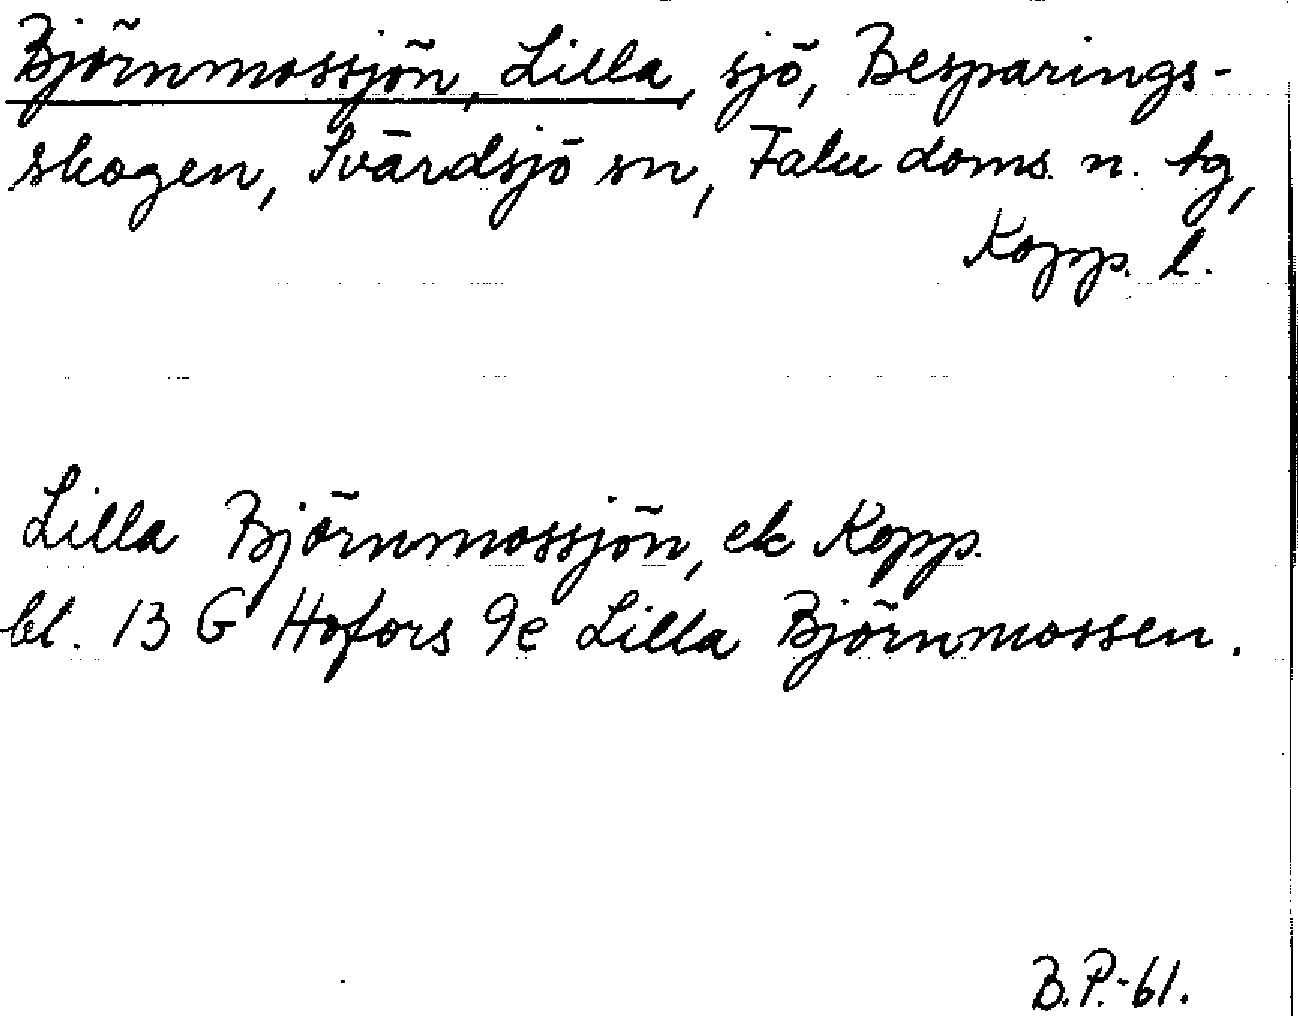 Björnmossjön, Lilla, sjö, Besparings-
skogen, Svärdsjö sn, Falu doms. n. tg,
Kopp. l.
Lilla Björnmossjön, ek Kopp.
bl. 13 G Hofors 9e Lilla Björnmossen.
B.P.-61.